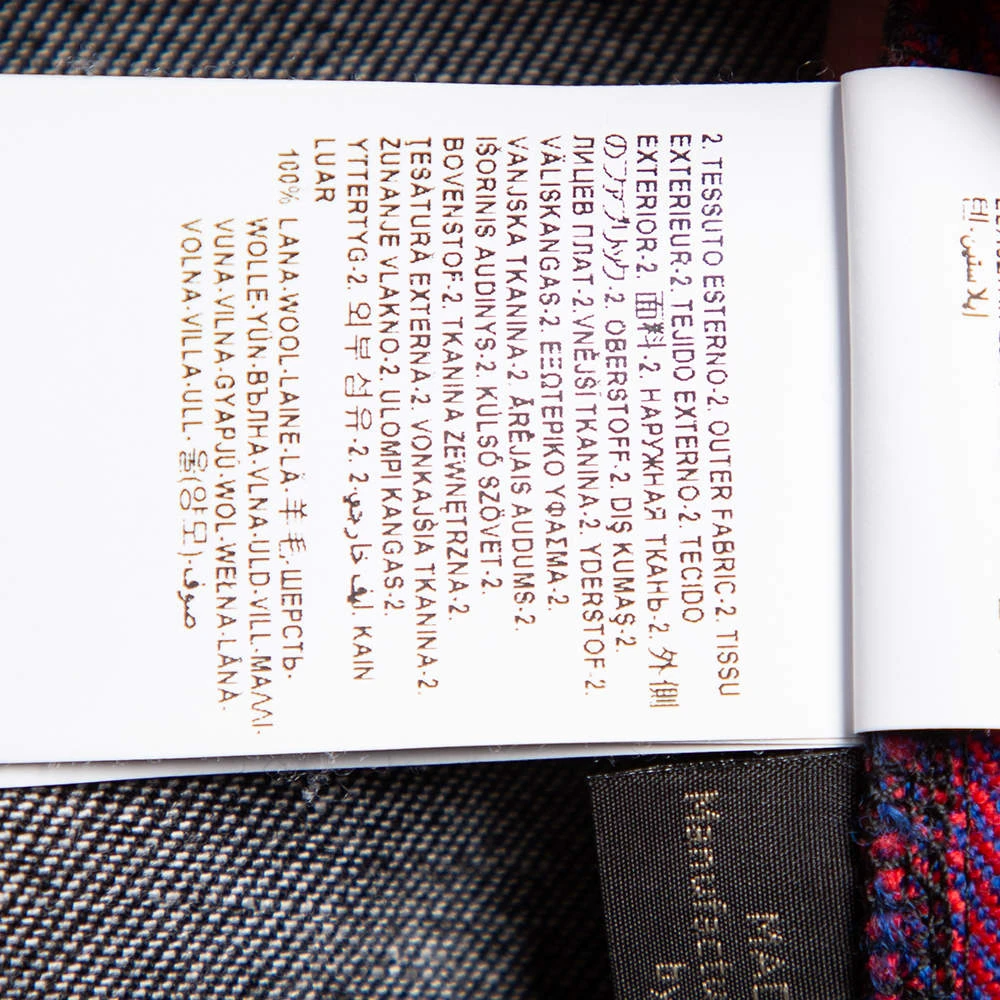 2. TESSUTO ESTERNO·2. OUTER FABRIC·2. TISSU
EXTERIEUR·2. TEJIDO EXTERNO·2. TECIDO
EXTERIOR·2. 面料·2. НАРУЖНАЯ ТКАНЬ·2. 外側
のファブリック·2. OBERSTOFF·2. DIŞ KUMAŞ·2.
ЛИЦЕВ ПЛАТ·2.VNĚJŠÍ TKANINA·2. YDERSTOF·2.
VÄLISKANGAS·2. ΕΞΩΤΕΡΙΚΟ ΥΦΑΣΜΑ·2.
VANJSKA TKANINA·2. ĀRĒJAIS AUDUMS·2.
IŠORINIS AUDINYS·2. KÜLSŐ SZÖVET·2.
BOVENSTOF·2. TKANINA ZEWNĘTRZNA·2.
ŢESĂTURĂ EXTERNA·2. VONKAJŠIA TKANINA·2.
ZUNANJE VLAKNO·2. ULOMPI KANGAS·2.
YTTERTYG·2. 외부 섬유·2. 2·ليف خارجي. KAIN
LUAR
100% LANA·WOOL·LAINE·LÃ·羊毛·ШЕРСТЬ·
WOLLE·YÜN·ВЪЛНА·VLNA·ULD·VILL·ΜΑΛΛΙ·
VUNA·VILNA·GYAPJÚ·WOL·WEŁNA·LÂNĂ·
VOLNA·VILLA·ULL·울(양모)·صوف·
Manufactu
by